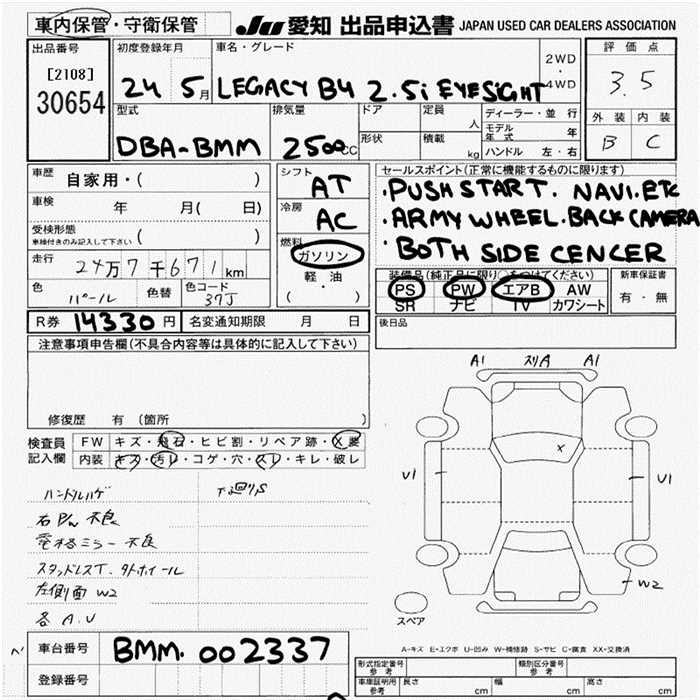 車内保管・守衛保管
JU 愛知 出品申込書 JAPAN USED CAR DEALERS ASSOCIATION
出品番号 初度登録年月 車名・グレード 評価点
[2108] 2WD
・
30654 24 5月 LEGACY B4 2.5i EYESIGHT 4WD 3.5
型式 排気量 ドア 定員 人 ディーラー・並行 外装 内装
モデル年式 年
DBA-BMM 2500cc 形状 積載 kg ハンドル 左・右 B C
車歴 自家用・( ) シフト AT セールスポイント(正常に機能するものに限ります)
車検 年 月( 日) 冷房 AC ・PUSH START. NAVI. ETC
・ARMY WHEEL. BACK CAMERA
受検形態 ( ) 燃料 ・BOTH SIDE CENCER
車検付きのみ記入して下さい ガソリン
走行 24万7千671km 軽・油 装備品(純正品に限り○をつけてください) 新車保証書
色 パール 色替 色コード 37J ( ) PS PW エアB AW 有・無
SR ナビ TV カワシート
R券 14330円 名変通知期限 月 日 後日品
注意事項申告欄(不具合内容等は具体的に記入して下さい)
A1 スリA A1
修復歴 有 (箇所 )
検査員 FW キズ・飛石・ヒビ割・リペア跡・X要
記入欄 内装 キズ・汚レ・コゲ・穴・スレ・キレ・破レ
X
ハンドルハゲ 下廻りS
U1 U1
右P/W 不良
電格ミラー不良
スタッドレスT.タトホイール
左側面 W2 W2
各 A.U
スペア
A-キズ E-エクボ U-凹み W-補修跡 S-サビ C-腐食 XX-交換済
車台番号 BMM. 002337
型式指定番号 参考 類別区分番号 参考
登録番号 車庫証明用 参考 長さ cm 幅 cm 高さ cm